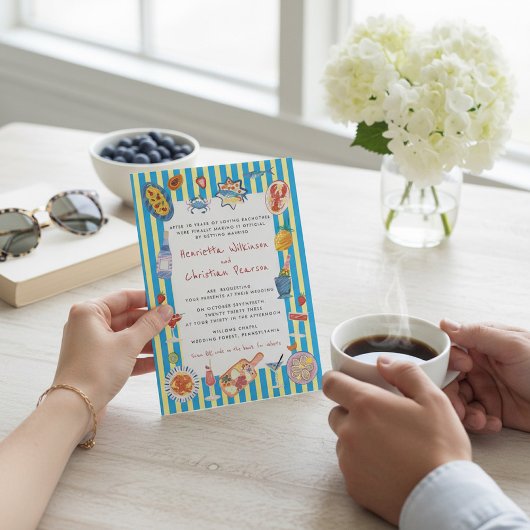 AFTER 10 YEARS OF LOVING EACHOTHER
WERE FINALLY MAKING IT OFFICIAL
BY GETTING MARRIED
Henrietta Wilkinson
and
Christian Pearson
ARE REQUESTING
YOUR PRESENTS AT THEIR WEDDING
ON OCTOBER SEVENTEENTH,
TWENTY THIRTY THREE
AT FOUR THIRTY IN THE AFTERNOON
WILLOWS CHAPAL
WEDDING FOREST, PENNSYLVANIA
Scan QR code on the back for details